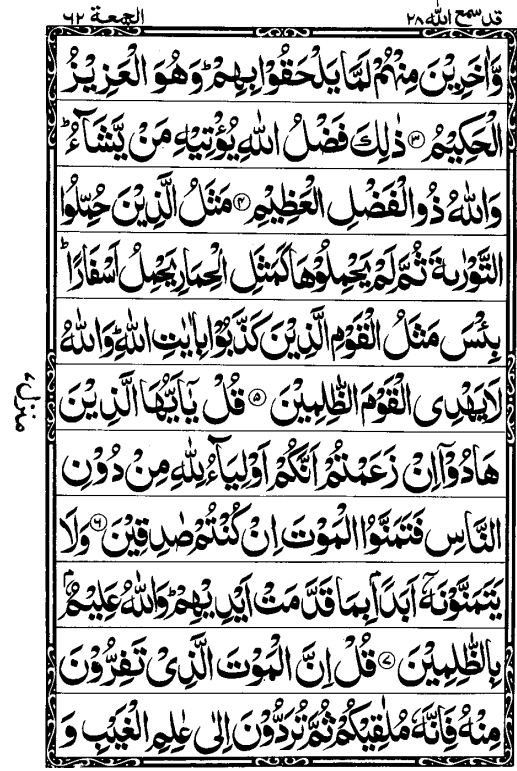 قد سمع الله ٢٨
الجمعة ٦٢
وَّاٰخَرِيْنَ مِنْهُمْ لَمَّا يَلْحَقُوْا بِهِمْ ؕ وَهُوَ الْعَزِيْزُ
الْحَكِيْمُ ﴿٣﴾ ذٰلِكَ فَضْلُ اللّٰهِ يُؤْتِيْهِ مَنْ يَّشَآءُ ؕ
وَاللّٰهُ ذُو الْفَضْلِ الْعَظِيْمِ ﴿٤﴾ مَثَلُ الَّذِيْنَ حُمِّلُوا
التَّوْرٰىةَ ثُمَّ لَمْ يَحْمِلُوْهَا كَمَثَلِ الْحِمَارِ يَحْمِلُ اَسْفَارًا ؕ
بِئْسَ مَثَلُ الْقَوْمِ الَّذِيْنَ كَذَّبُوْا بِاٰيٰتِ اللّٰهِ ؕ وَاللّٰهُ
لَا يَهْدِى الْقَوْمَ الظّٰلِمِيْنَ ﴿٥﴾ قُلْ يٰۤاَيُّهَا الَّذِيْنَ
هَادُوْۤا اِنْ زَعَمْتُمْ اَنَّكُمْ اَوْلِيَآءُ لِلّٰهِ مِنْ دُوْنِ
النَّاسِ فَتَمَنَّوُا الْمَوْتَ اِنْ كُنْتُمْ صٰدِقِيْنَ ﴿٦﴾ وَلَا
يَتَمَنَّوْنَهٗۤ اَبَدًۢا بِمَا قَدَّمَتْ اَيْدِيْهِمْ ؕ وَاللّٰهُ عَلِيْمٌۢ
بِالظّٰلِمِيْنَ ﴿٧﴾ قُلْ اِنَّ الْمَوْتَ الَّذِىْ تَفِرُّوْنَ
مِنْهُ فَاِنَّهٗ مُلٰقِيْكُمْ ثُمَّ تُرَدُّوْنَ اِلٰى عٰلِمِ الْغَيْبِ وَ
منزل ٧